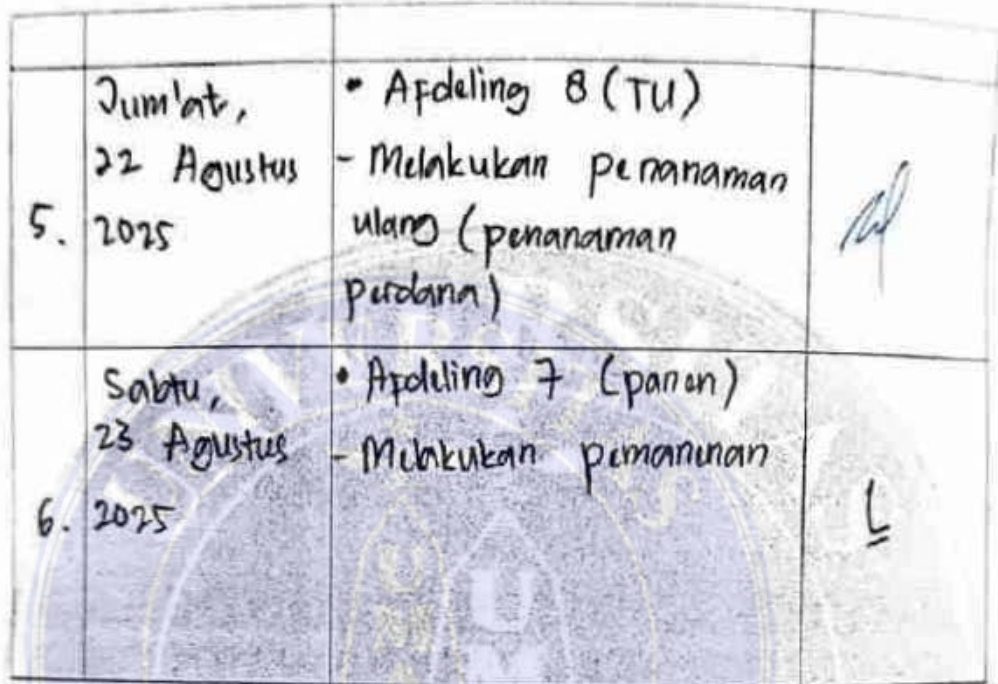 Jum'at,
22 Agustus
5. 2025
• Afdeling 8 (TU)
- Melakukan penanaman
ulang (penanaman
perdana)
Sabtu,
23 Agustus
6. 2025
• Afdeling 7 (panen)
- Melakukan pemanenan